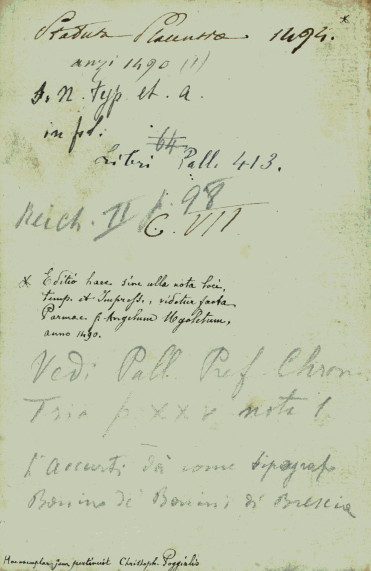 *
Statuta Placentiae 1494.
anzi 1490 !!!
S. N. typ. et a.
in fol.
64
Libri Pall. 413.
Reich. II p. 98
C. VII
* Editio haec sine ulla nota loci,
temp. et Impress., videtur facta
Parmae p. Angelum Ugoletum,
anno 1490.
Vedi Pall. Pref. Chron.
p. XXV nota 1
L'Accurti dà come tipografo
Bonino de' Bonini di Brescia
Hoc exemplar jam pertinuit Christoph. Poggialis